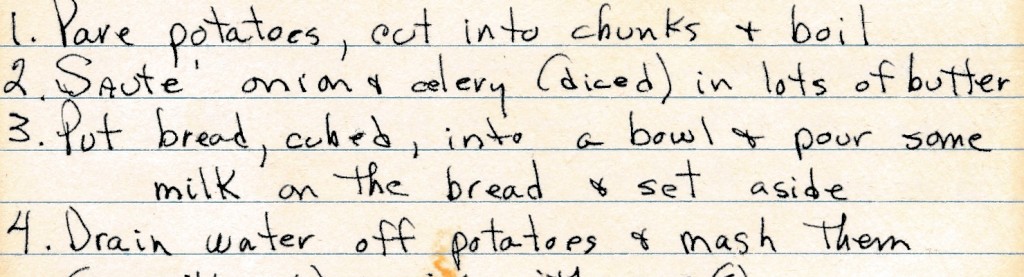 1. Pare potatoes, cut into chunks + boil
2. Sauté onion & celery (diced) in lots of butter
3. Put bread, cubed, into a bowl & pour some
milk on the bread & set aside
4. Drain water off potatoes & mash them